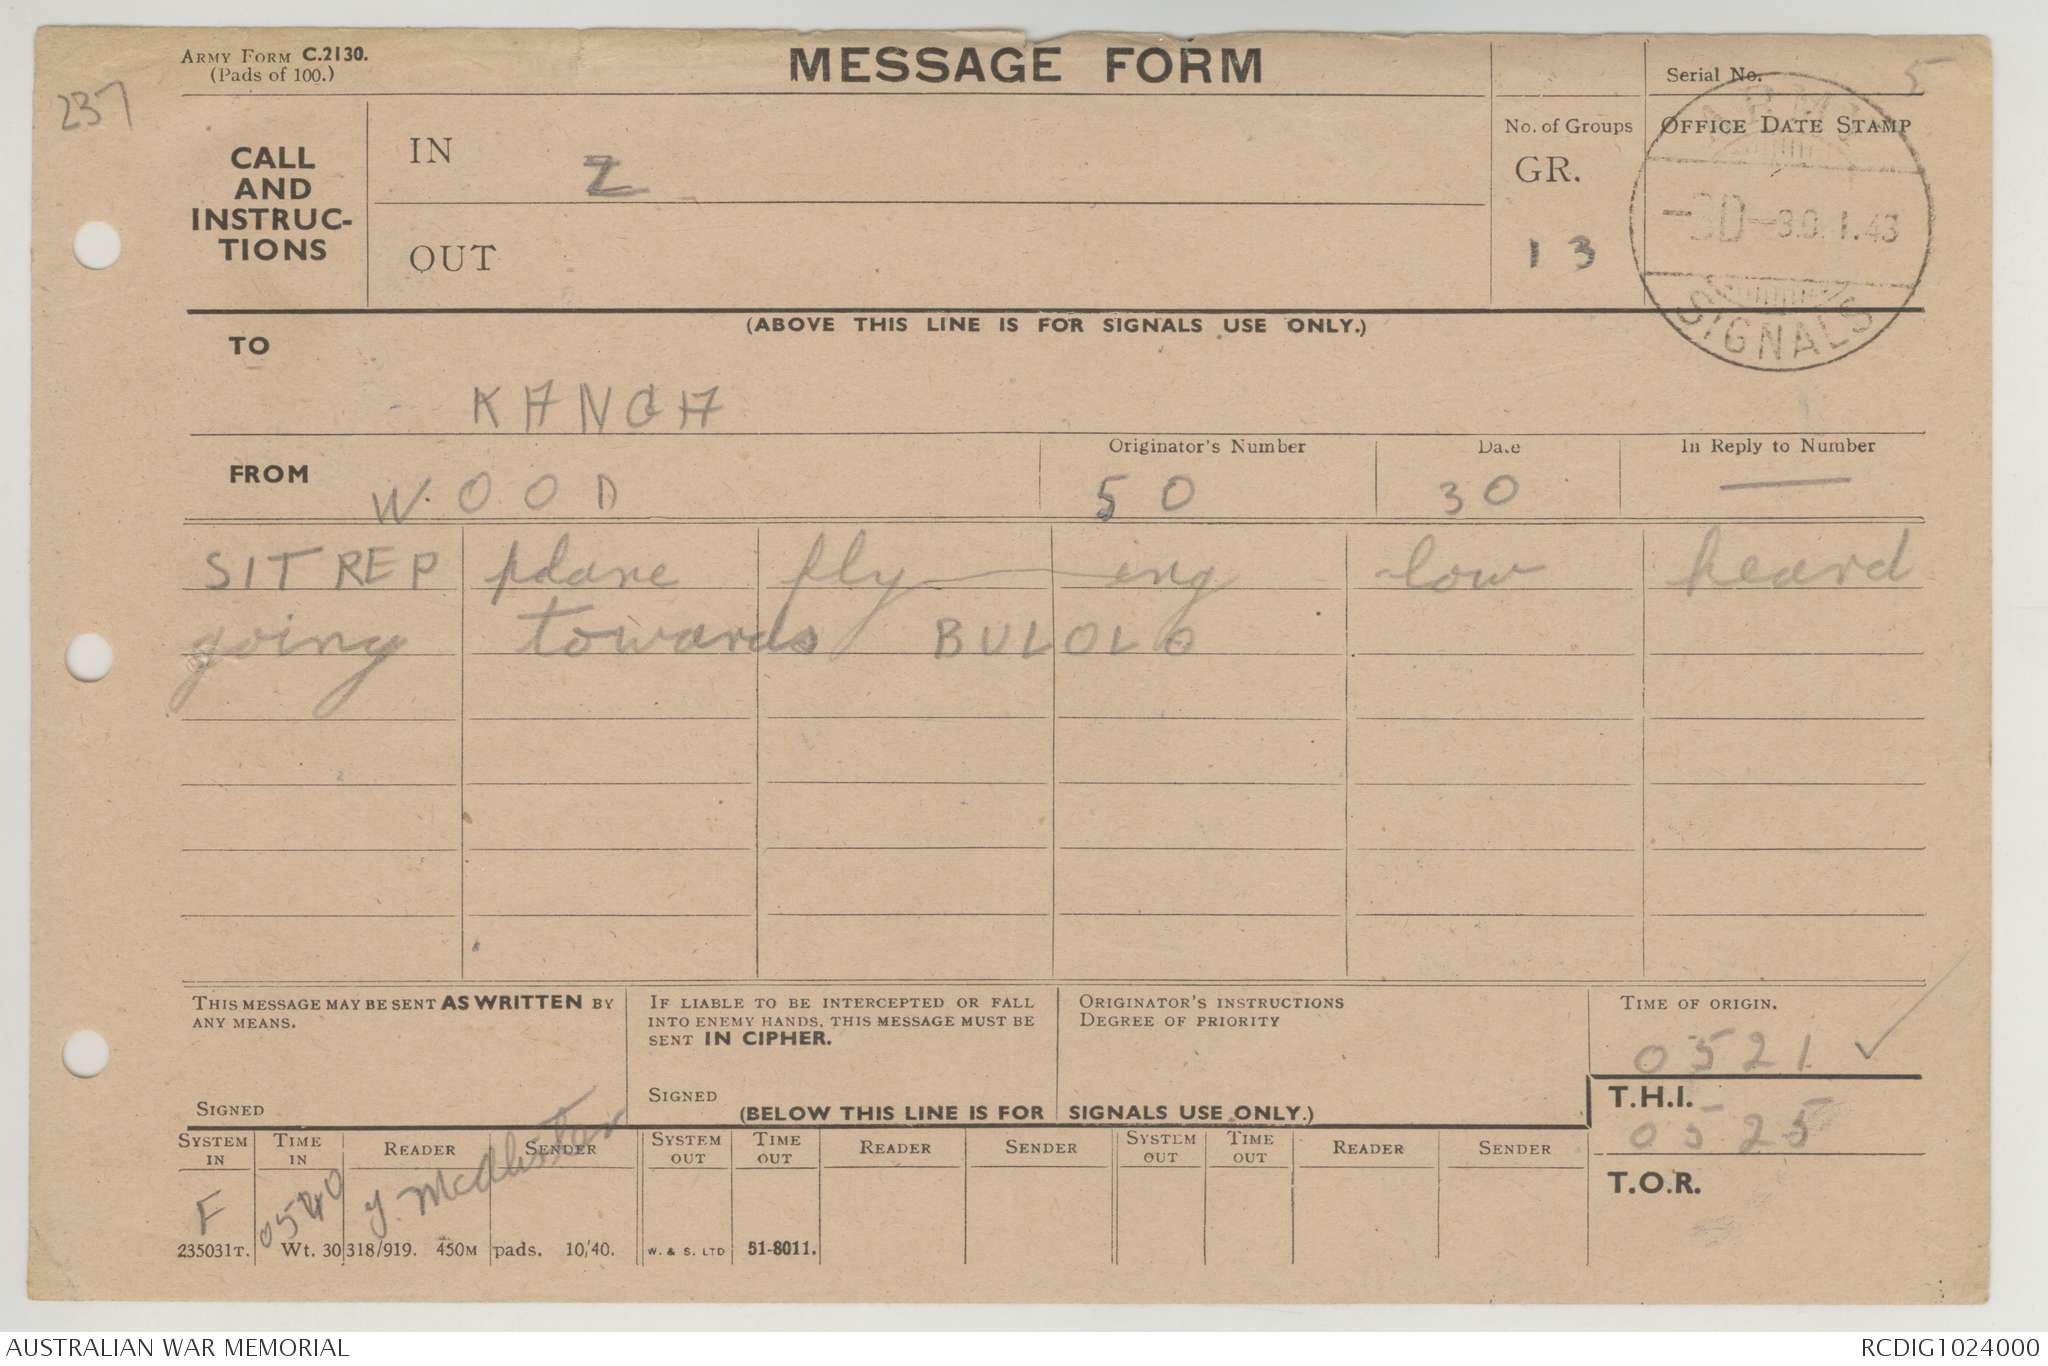 ARMY FORM C.2130.
(Pads of 100.)
MESSAGE FORM
Serial No. 5
237
CALL
AND
INSTRUC-
TIONS
IN Z
OUT
No. of Groups
GR.
13
OFFICE DATE STAMP
ARMY
-3D-30.1.43
SIGNALS
(ABOVE THIS LINE IS FOR SIGNALS USE ONLY.)
TO
KANGA
FROM WOOD
Originator's Number
50
Date
30
In Reply to Number
—
SITREP plane fly—ing low heard
going towards BULOLO
THIS MESSAGE MAY BE SENT AS WRITTEN BY
ANY MEANS.
SIGNED
IF LIABLE TO BE INTERCEPTED OR FALL
INTO ENEMY HANDS, THIS MESSAGE MUST BE
SENT IN CIPHER.
SIGNED
ORIGINATOR'S INSTRUCTIONS
DEGREE OF PRIORITY
TIME OF ORIGIN.
0521
T.H.I.
0525
T.O.R.
(BELOW THIS LINE IS FOR SIGNALS USE ONLY.)
SYSTEM IN TIME IN READER SENDER SYSTEM OUT TIME OUT READER SENDER SYSTEM OUT TIME OUT READER SENDER
F 0540 J. McAlister
235031T. Wt. 30318/919. 450M pads. 10/40. W. & S. LTD 51-8011.
AUSTRALIAN WAR MEMORIAL
RCDIG1024000